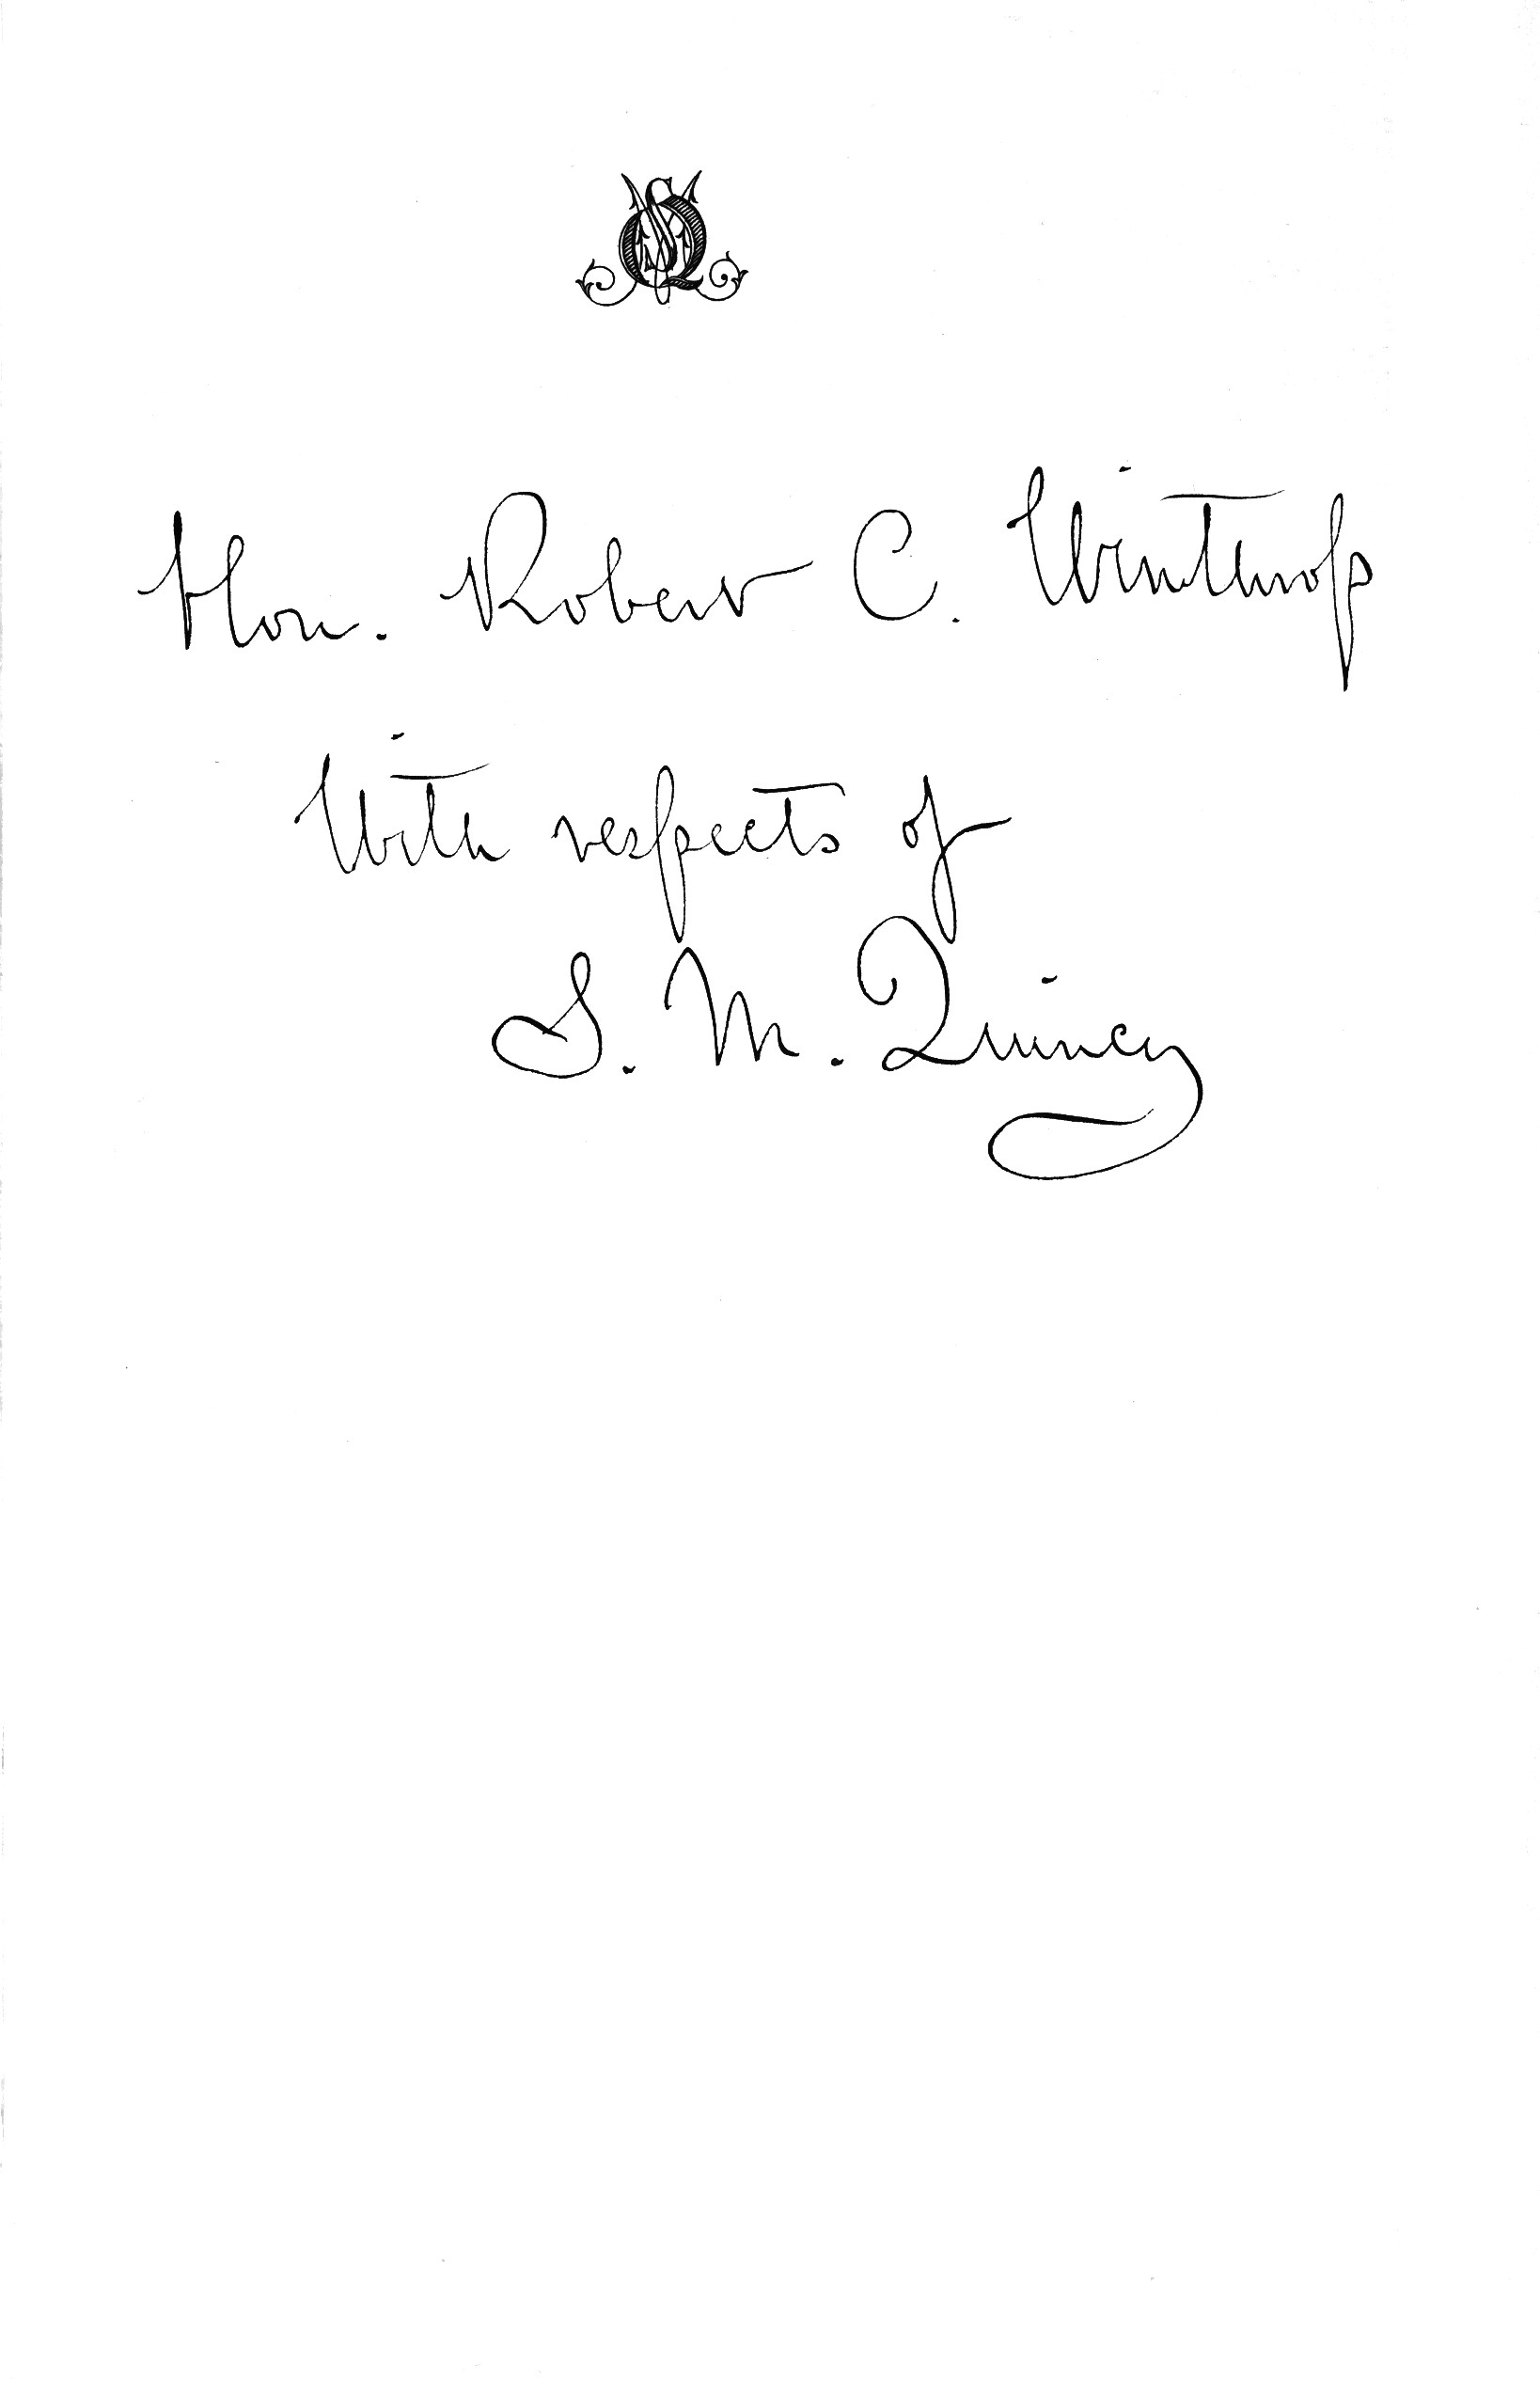 SMQ
Hon. Robert C. Winthrop
With respects of
S. M. Quincy